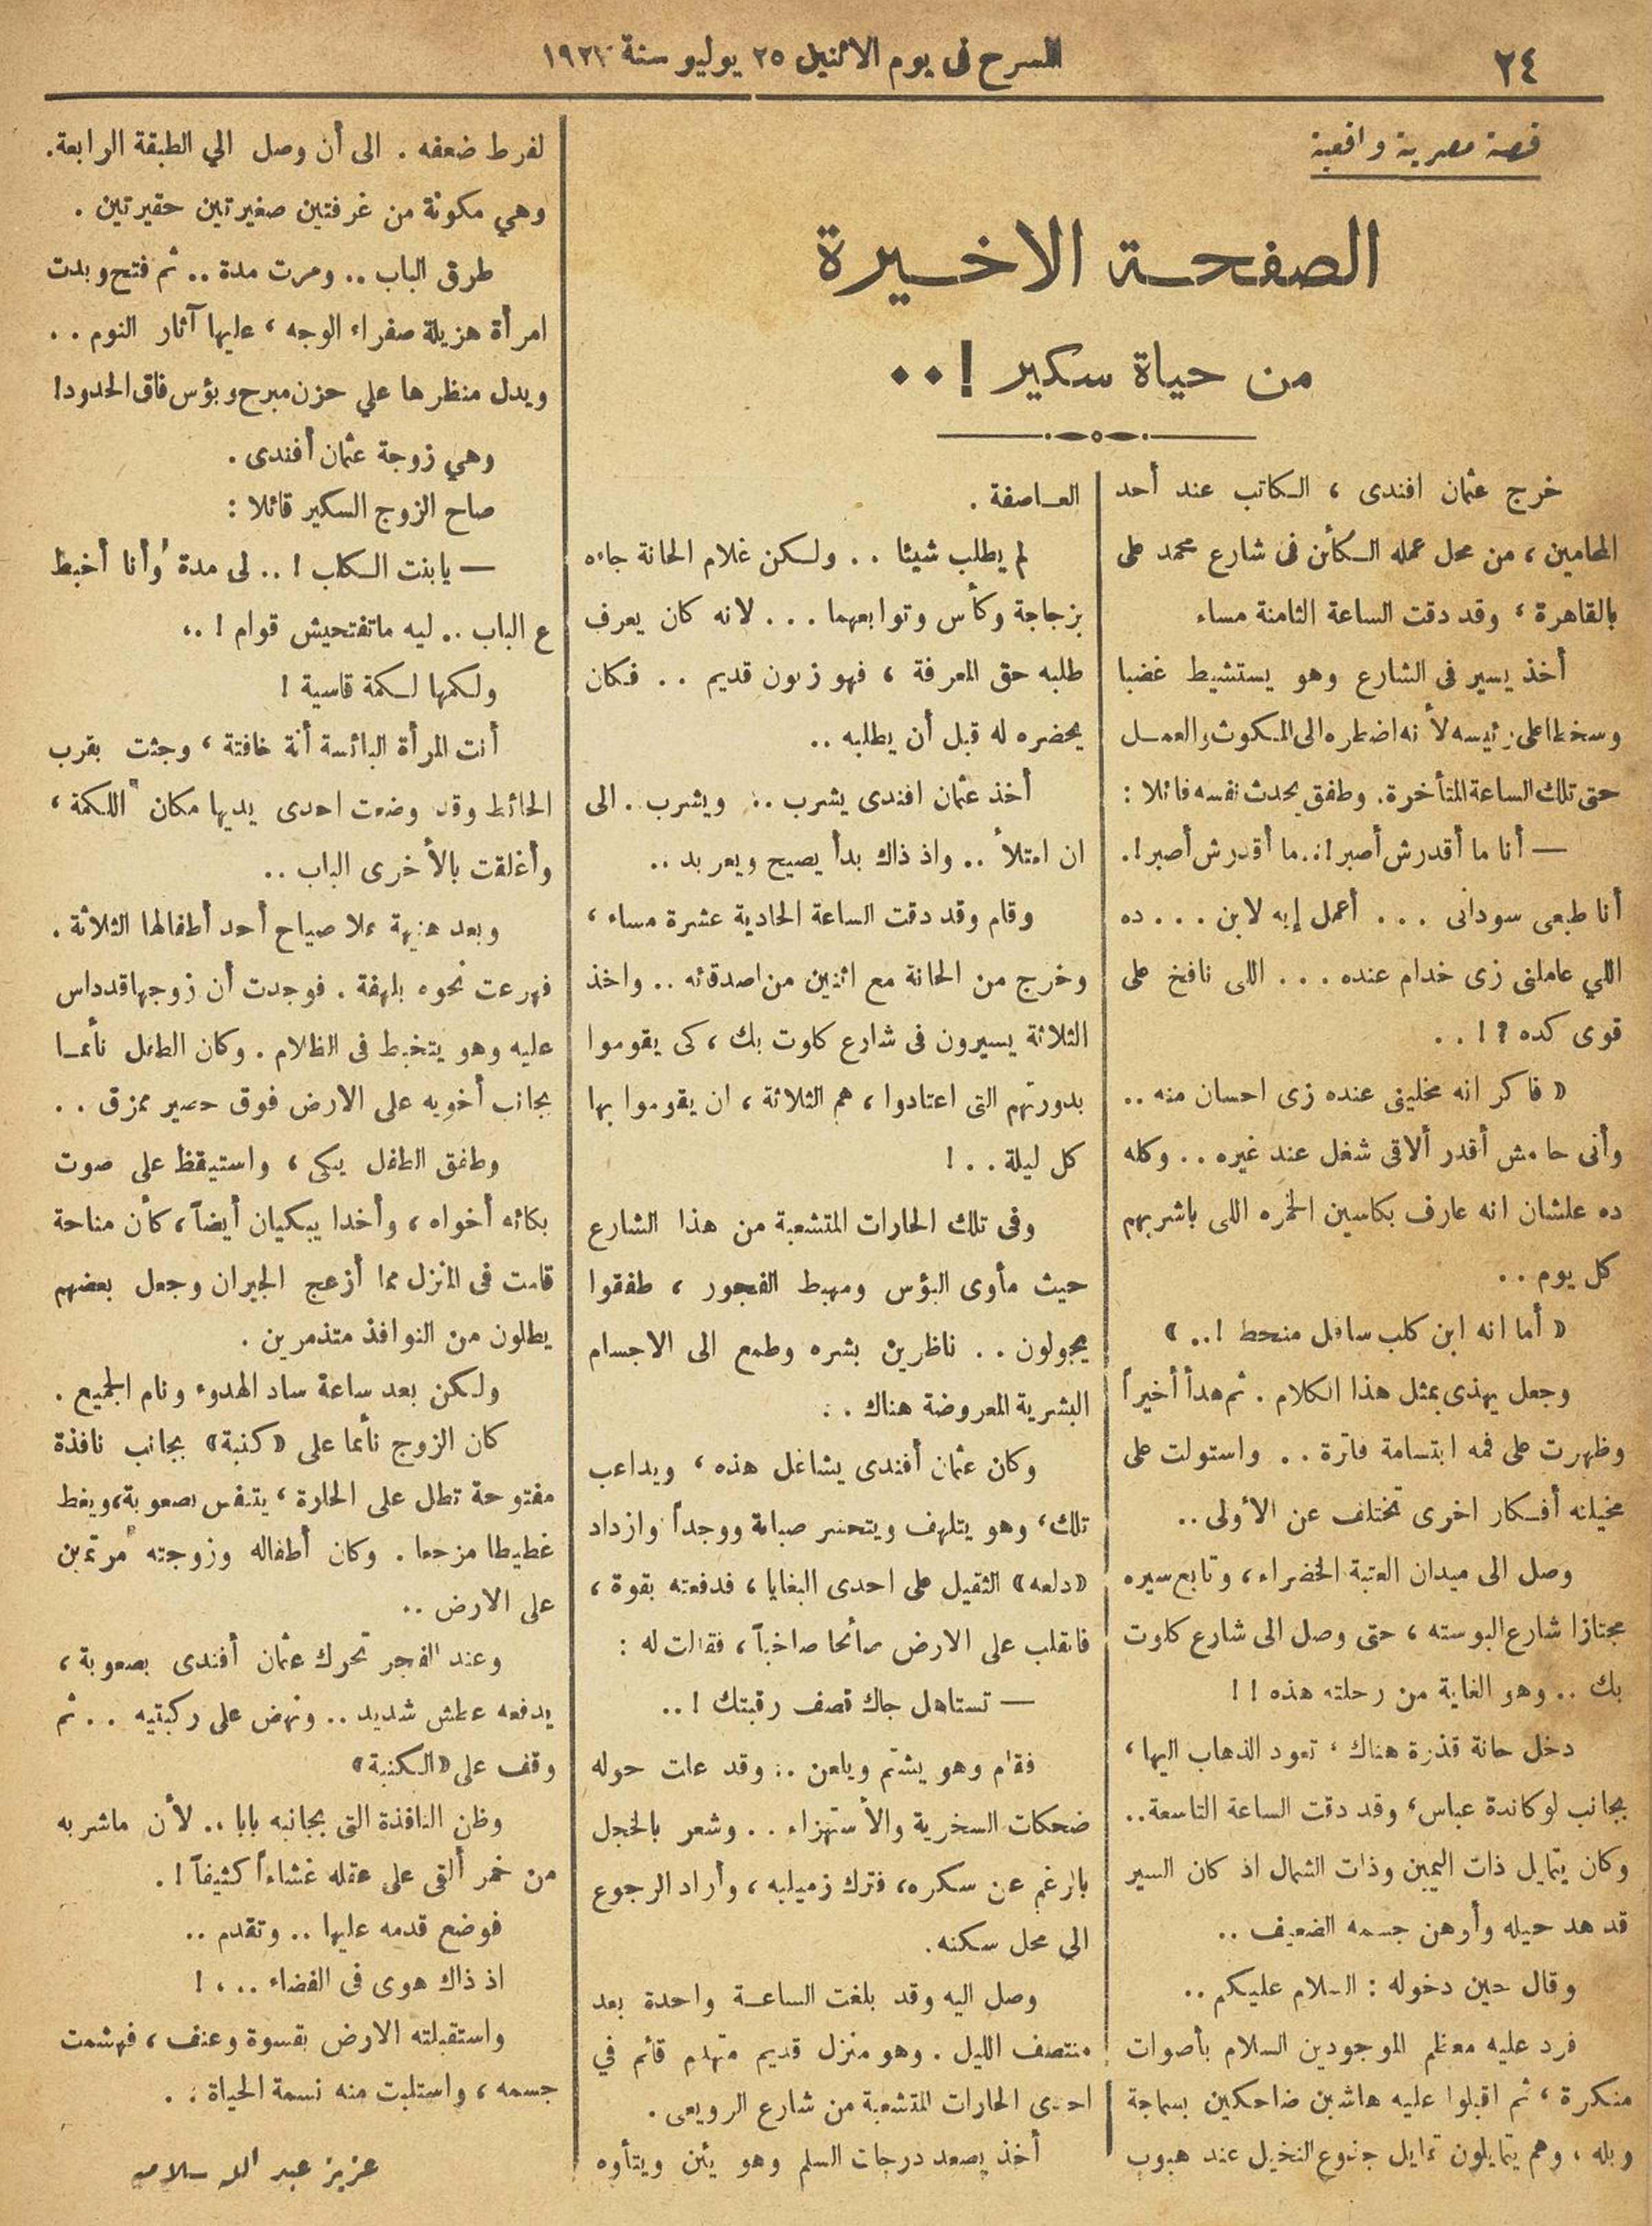 ٢٤
المسرح فى يوم الاثنين ٢٥ يوليو سنة ١٩٢٧
قصة مصرية واقعية
الصفحة الاخيرة
من حياة سكير !..
خرج عثمان افندى ، الكاتب عند أحد
المحامين ، من محل عمله الكأن فى شارع محمد على
بالقاهرة ، وقد دقت الساعة الثامنة مساء
أخذ يسير فى الشارع وهو يستشيط غضبا
وسخطا على رئيسه لأنه اضطره الى المكوث والعمل
حتى تلك الساعة المتأخرة . وطفق يحدث نفسه قائلا :
— أنا ما أقدرش أصبر !.. ما أقدرش أصبر !.
أنا طبعى سودانى ... أعمل إيه لابن ... ده
اللي عاملنى زى خدام عنده ... اللى نافخ على
قوى كده ؟ ! ..
« فاكر انه مخلينى عنده زى احسان منه ..
وأنى حا مش أقدر ألاقى شغل عند غيره .. وكله
ده علشان انه عارف بكاسين الخمره اللى باشربهم
كل يوم ..
« أما انه ابن كلب سافل منحط !.. »
وجعل يهذى بمثل هذا الكلام . ثم هدأ أخيراً
وظهرت على فمه ابتسامة فاترة .. واستولت على
مخيلته أفكار اخرى تختلف عن الأولى ..
وصل الى ميدان العتبة الخضراء ، وتابع سيره
مجتازا شارع البوسته ، حتى وصل الى شارع كلوت
بك .. وهو الغاية من رحلته هذه ! !
دخل حانة قذرة هناك ، تعود الذهاب اليها ،
بجانب لوكاندة عباس ، وقد دقت الساعة التاسعة ..
وكان يتمايل ذات اليمين وذات الشمال اذ كان السير
قد هد حيله وأوهن جسمه الضعيف ..
وقال حين دخوله : السلام عليكم ..
فرد عليه معظم الموجودين السلام بأصوات
منكرة ، ثم اقبلوا عليه هاشين ضاحكين بسماجة
وبله ، وهم يتمايلون تمايل جذوع النخيل عند هبوب
العاصفة .
لم يطلب شيئا .. ولكن غلام الحانة جاءه
بزجاجة وكأس وتوابعهما ... لانه كان يعرف
طلبه حق المعرفة ، فهو زبون قديم .. فكان
يحضره له قبل أن يطلبه ..
أخذ عثمان افندى يشرب .. ويشرب . الى
ان امتلأ .. واذ ذاك بدأ يصيح ويعربد ..
وقام وقد دقت الساعة الحادية عشرة مساء ،
وخرج من الحانة مع اثنين من اصدقائه .. واخذ
الثلاثة يسيرون فى شارع كلوت بك ، كى يقوموا
بدورتهم التى اعتادوا ، هم الثلاثة ، ان يقوموا بها
كل ليلة .. !
وفى تلك الحارات المتشعبة من هذا الشارع
حيث مأوى البؤس ومهبط الفجور ، طفقوا
يجولون .. ناظرين بشره وطمع الى الاجسام
البشرية المعروضة هناك ..
وكان عثمان أفندى يشاغل هذه ، ويداعب
تلك ، وهو يتلهف ويتحسر صبابة ووجداً وازداد
« دلعه » الثقيل على احدى البغايا ، فدفعته بقوة ،
فانقلب على الارض صائحا صاخباً ، فقالت له :
— تستاهل جاك قصف رقبتك !..
فقام وهو يشتم ويلعن .. وقد علت حوله
ضحكات السخرية والأستهزاء .. وشعر بالخجل
بالرغم عن سكره ، فترك زميليه ، وأراد الرجوع
الي محل سكنه .
وصل اليه وقد بلغت الساعة واحدة بعد
منتصف الليل . وهو منزل قديم متهدم قأم في
احدى الحارات المتشعبة من شارع الرويعى .
أخذ يصعد درجات السلم وهو يئن ويتأوه
لفرط ضعفه . الى أن وصل الي الطبقة الرابعة .
وهي مكونة من غرفتين صغيرتين حقيرتين .
طرق الباب .. ومرت مدة .. ثم فتح وبدت
امرأة هزيلة صفراء الوجه ، عليها آثار النوم ..
ويدل منظرها علي حزن مبرح وبؤس فاق الحدود !
وهي زوجة عثمان أفندى .
صاح الزوج السكير قائلا :
— يا بنت الكلب ! .. لى مدة وأنا أخبط
ع الباب .. ليه ماتفتحيش قوام ! ..
ولكمها لكمة قاسية !
أنت المرأة البائسة أنة خافتة ، وجثت بقرب
الحائط وقد وضعت احدى يديها مكان اللكمة ،
وأغلقت بالأخرى الباب ..
وبعد هنيهة علا صياح أحد أطفالها الثلاثة .
فهرعت نحوه بلهفة . فوجدت أن زوجها قد داس
عليه وهو يتخبط فى الظلام . وكان الطفل نأمـا
بجانب أخويه على الارض فوق حصير ممزق ..
وطفق الطفل يبكى ، واستيقظ على صوت
بكائه أخواه ، وأخدا يبكيان أيضاً ، كأن مناحة
قامت فى المنزل مما أزعج الجيران وجعل بعضهم
يطلون من النوافذ متذمرين .
ولكن بعد ساعة ساد الهدوء ونام الجميع .
كان الزوج نأما على « كنبة » بجانب نافذة
مفتوحة تطل على الحارة ، يتنفس بصعوبة ، ويغط
غطيطا مزعجا . وكان أطفاله وزوجته مرتمين
على الارض ..
وعند الفجر تحرك عثمان أفندى بصعوبة ،
يدفعه عطش شديد .. ونهض على ركبتيه .. ثم
وقف على « الكنبة »
وظن النافذة التى بجانبه بابا .. لأن ماشربه
من خمر ألقى على عقله غشاءاً كثيفاً ! .
فوضع قدمه عليها .. وتقدم ..
اذ ذاك هوى فى الفضاء .. !
واستقبلته الارض بقسوة وعنف ، فهشمت
جسمه ، واستلبت منه نسمة الحياة ..
عزيز عبد الله سلامه